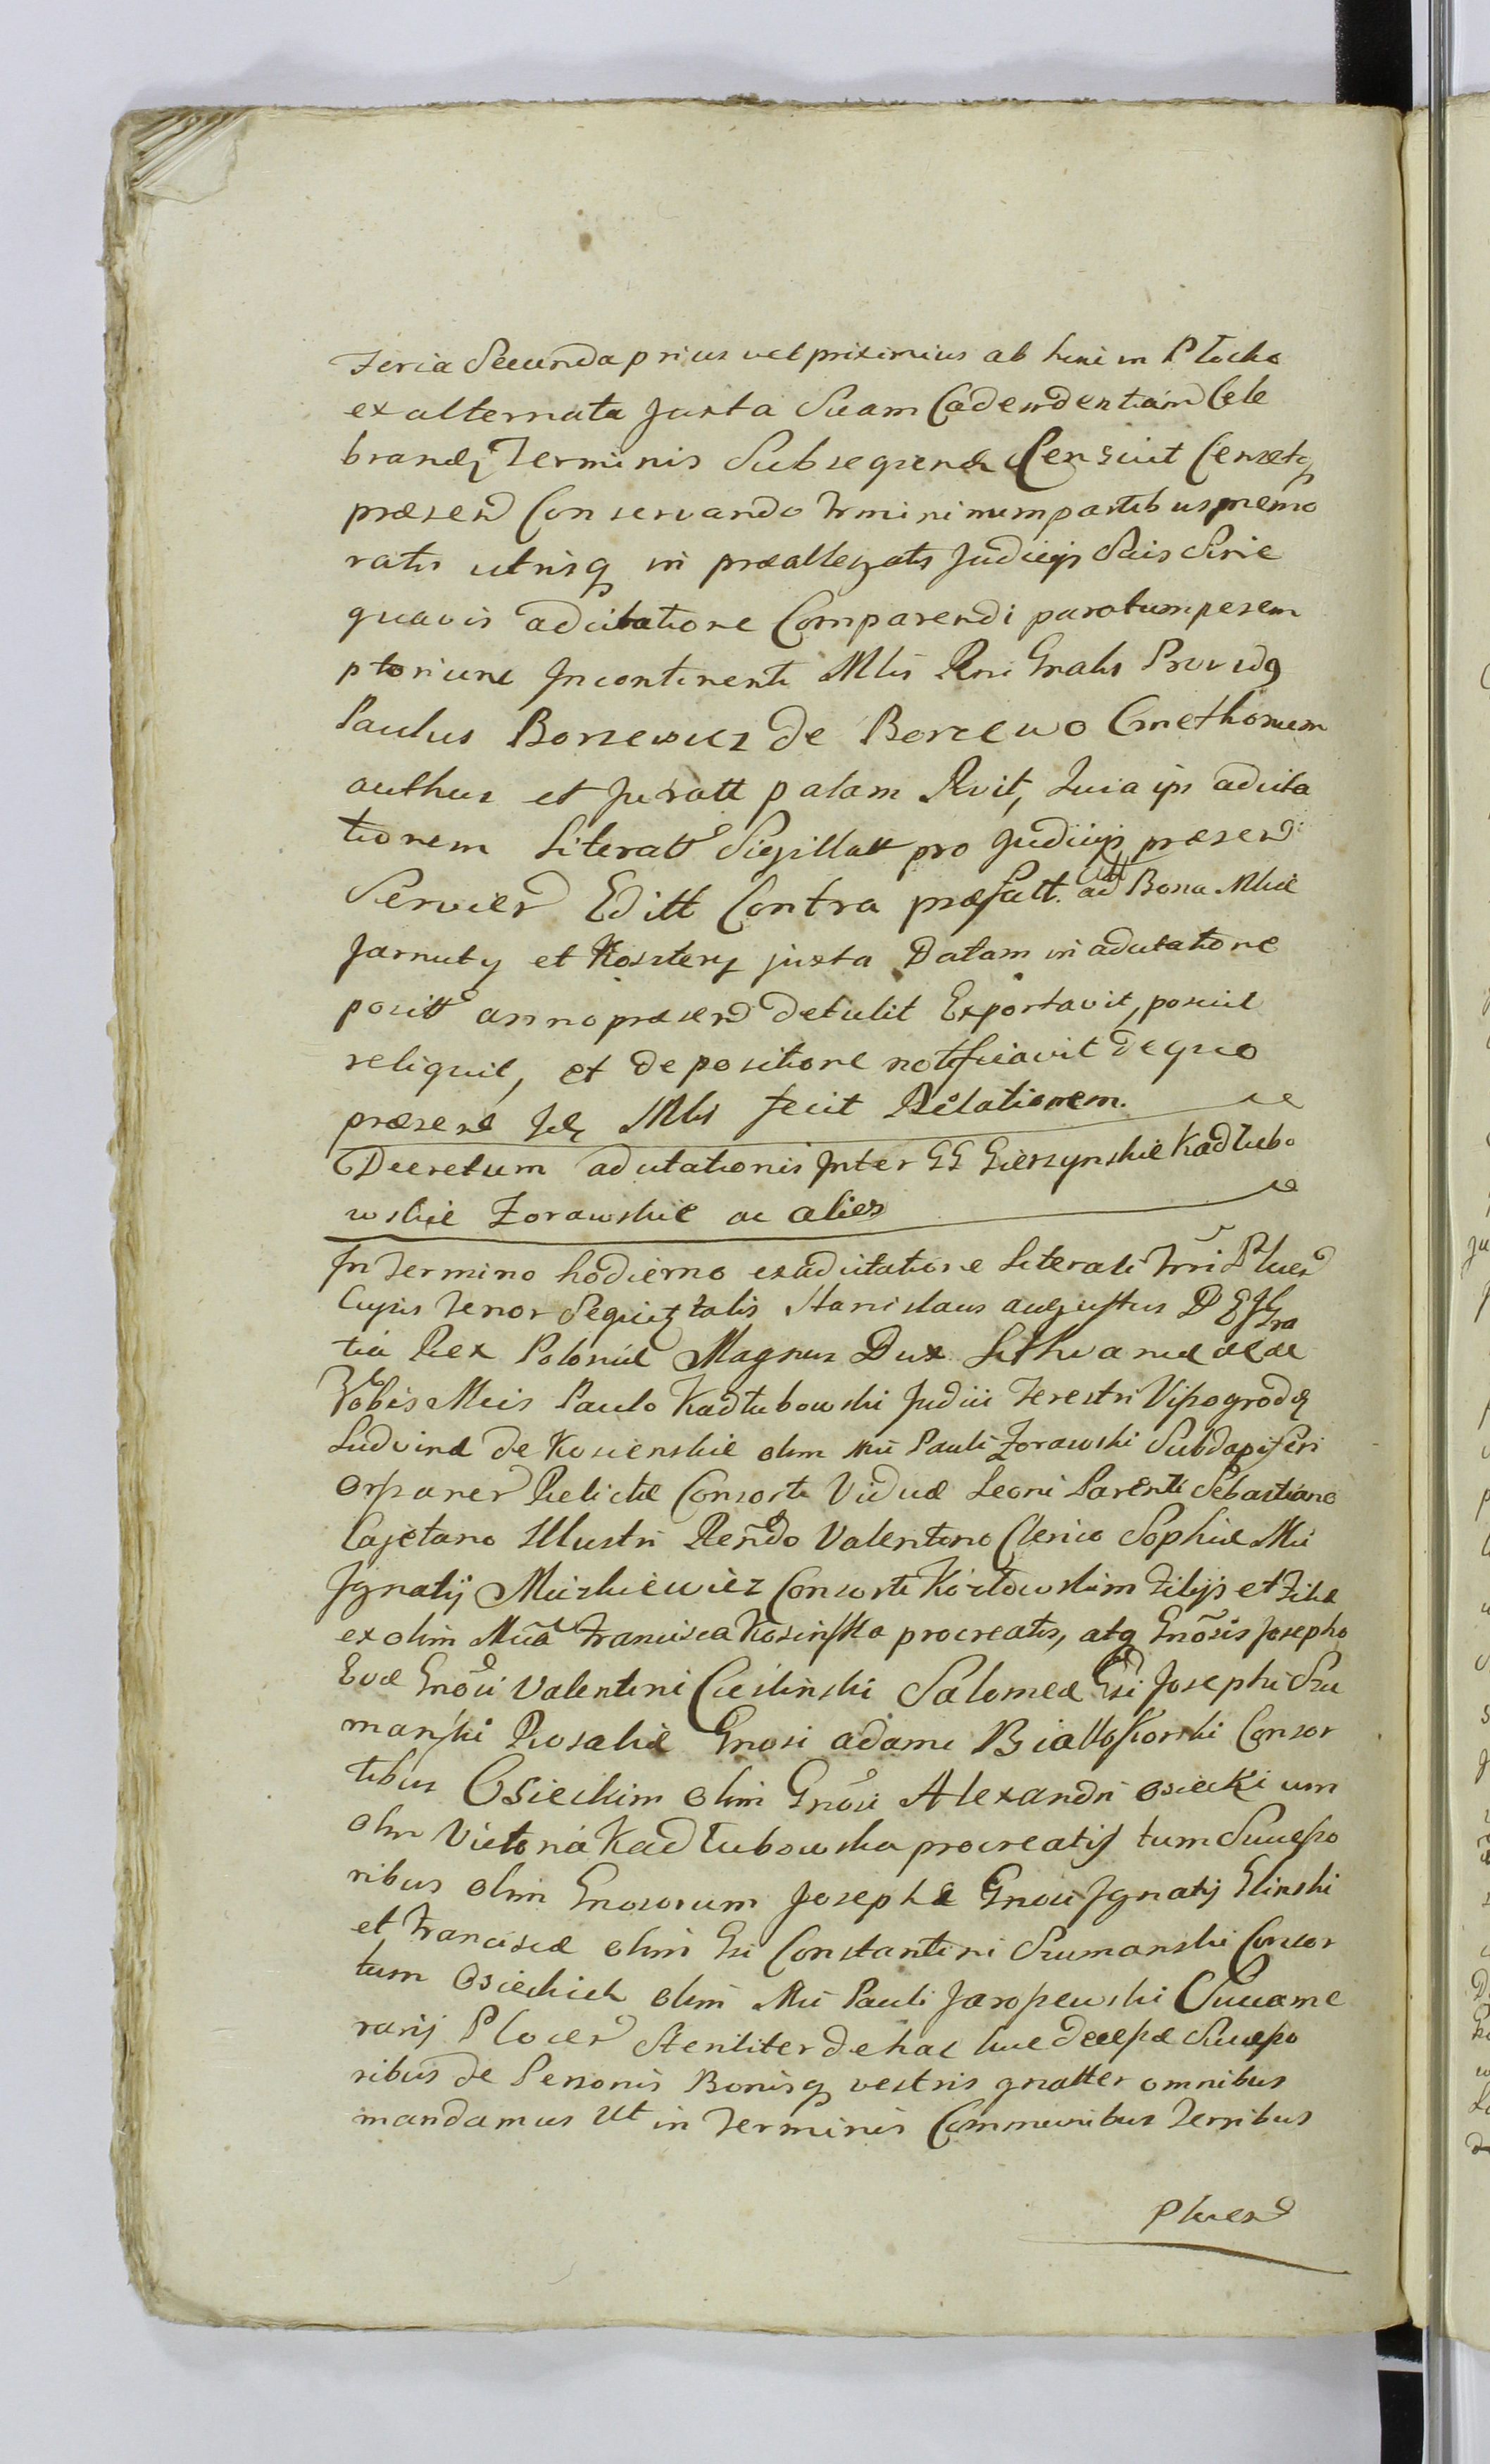 Feria Secunda prius vel priximius ab huic in Plocko
ex alternata Juxta Suam Cadendentiam Cele
brandę Terminis Subsequend Censuit Censetq
præsend Conservando Trminimum partibus præmo
ratis utrisq in præallegatis Judicijs Suis Sine
quavis adcitatione Comparendi paratum perem
ptoriume Incontinenti Mtis Rni Gnalis Providq
Paulus Borzewicz de Borcewo Cmethonum
authus et Juratt palam Rvit, Quia ips adcita
tionem Literatt Sigillatt pro Judicijs præsend
Servien Editt Contra præfatt. ad Bona Mlia
Jarnuty et Kosztery juxta Datam in adcitatione
positt anno præsend Detulit Exportavit, posuit
reliquit, et de positione notificavit de quo
præsens Jdę Mtis fecit Relationem.
Decretum adcitationis Inter GG Gierzynskie Kadłubo
wskie Zorawskie ac alios
In Termino hodierno ex adcitatione Literali Trri Plocen
Cujus Tenor Sequitq talis Stanislaus augustus D E J Gra
tia Rex Poloniæ Magnus Dux Lithvaniæ &c &c
Vobis Mcis Paulo Kadłubowski Judici Terestri Visogrodę
Ludvinæ de Kosienskie olim Mci Pauli Zorawski Subdapiferi
Orszanen Relictæ Consorti Viduæ Leoni Parenti Sebastiano
Cajetano Illustri Rendo Valentino Clerico Sophiæ Mci
Ignatij Miszkiewicz Consorti Kozłowskim Filijs et Filiæ
ex olim Mcia Francisca Kosinska procreatis, atq Gnosis Josepho
Evæ Gnosi Valentini Cieslinski Salomeæ Gsi Josephi Szu
manski Rosaliæ Gnosi adami Białloskorski Consor
tibus Osieckim olim Gnosi Alexandri Osiecki cum
olim Victoria Kadłubowska procreatis tum Successo
ribus olim Gnosorum Josephæ Gnosi Ignatij Glinski
et Franciscæ olim Gsi Constantini Szumanski Consor
tum Osieckich olim Mci Pauli Jaroszewski Vicecame
rarij Plocen Steriliter de hac luce decessæ Successo
ribus de Personis Bonisq vestris gnatter omnibus
mandamus Ut in Terminis Communibus Terribus
Plocen